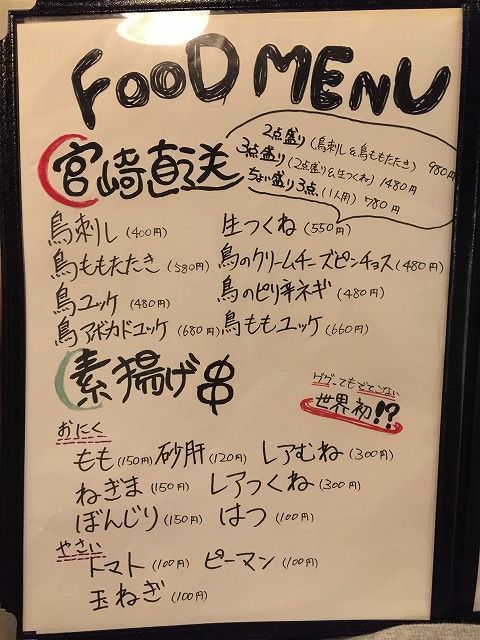 FOOD MENU
宮崎直送
2点盛り(鳥刺し&鳥ももたたき) 980円
3点盛り(2点盛り&生つくね) 1480円
ちょい盛り3点(1人用) 780円
鳥刺し(400円) 生つくね(550円)
鳥ももたたき(580円) 鳥のクリームチーズピンチョス(480円)
鳥ユッケ(480円) 鳥のピリ辛ネギ(480円)
鳥アボカドユッケ(680円) 鳥ももユッケ(660円)
素揚げ串
ググってもでてこない
世界初!?
おにく
もも(150円) 砂肝(120円) レアむね(300円)
ねぎま(150円) レアつくね(300円)
ぼんじり(150円) はつ(100円)
やさい
トマト(100円) ピーマン(100円)
玉ねぎ(100円)